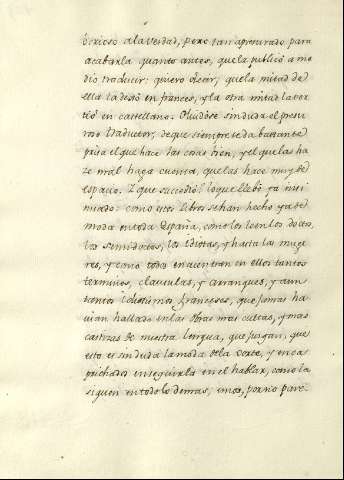 ó
óxioso à la verdad, pero tan apresurado para
acabarla quanto antes, que la publicó a me
dio traducir: quiero decir, que la mitad de
ella la dexó en frances, y la otra mitad la vor
tió en castellano. Olvidóse sin duda el presu
roso traductor, de que siempre se da bastante
prisa el que hace las cosas bien, y el que las ha
ze mal haga cuenta, que las hace muy de
espacio. Y que succedió? lo que llebo ya insi
nuado: como estos libros se han hecho ya de
moda en toda España, como los leen los doctos,
los semidoctos, los idiotas, y hasta las muge
res, y como todos encuentran en ellos tantos
terminos, clausulas, y arranques, y aun
tientos idiotismos franceses, que jamas ha
vian hallado en las obras mas cultas, y mas
castizas de nuestra lengua, que juzgan, que
esto es sin duda la moda de la Corte, y encap
prichados en seguirla en el hablar, como la
siguen en todo lo demas, unos, por no pare-